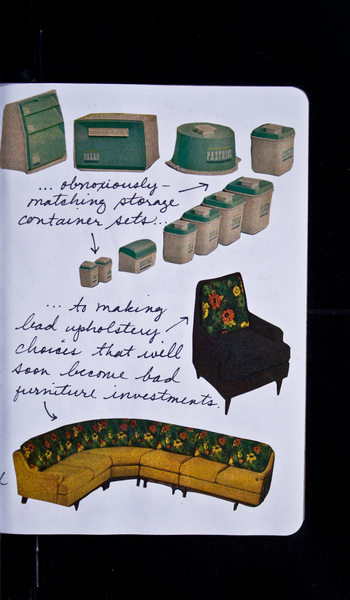 BREAD
PASTRIES
... obnoxiously-
matching storage
container sets...
... to making
bad upholstery
choices that will
soon become bad
furniture investments.